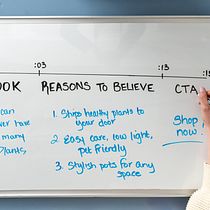 :03 :13 :15
OOK REASONS TO BELIEVE CTA
can
ever have
many
plants,
1. Ships healthy plants to
your door
2. Easy care, low light,
pet friendly
3. Stylish pots for any
space
Shop
now!